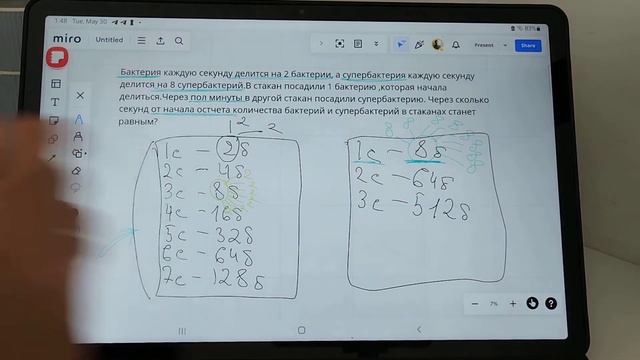 1:48 Tue, May 30
83%
miro Untitled
Present
Share
Бактерия каждую секунду делится на 2 бактерии, а супербактерия каждую секунду
делится на 8 супербактерий.В стакан посадили 1 бактерию ,которая начала
делиться.Через пол минуты в другой стакан посадили супербактерию. Через сколько
секунд от начала остчета количества бактерий и супербактерий в стаканах станет
равным?
1 2 2
1с - 2б
2с - 4б
3с - 8б
4с - 16б
5с - 32б
6с - 64б
7с - 128б
1с - 8б
2с - 64б
3с - 512б
7%